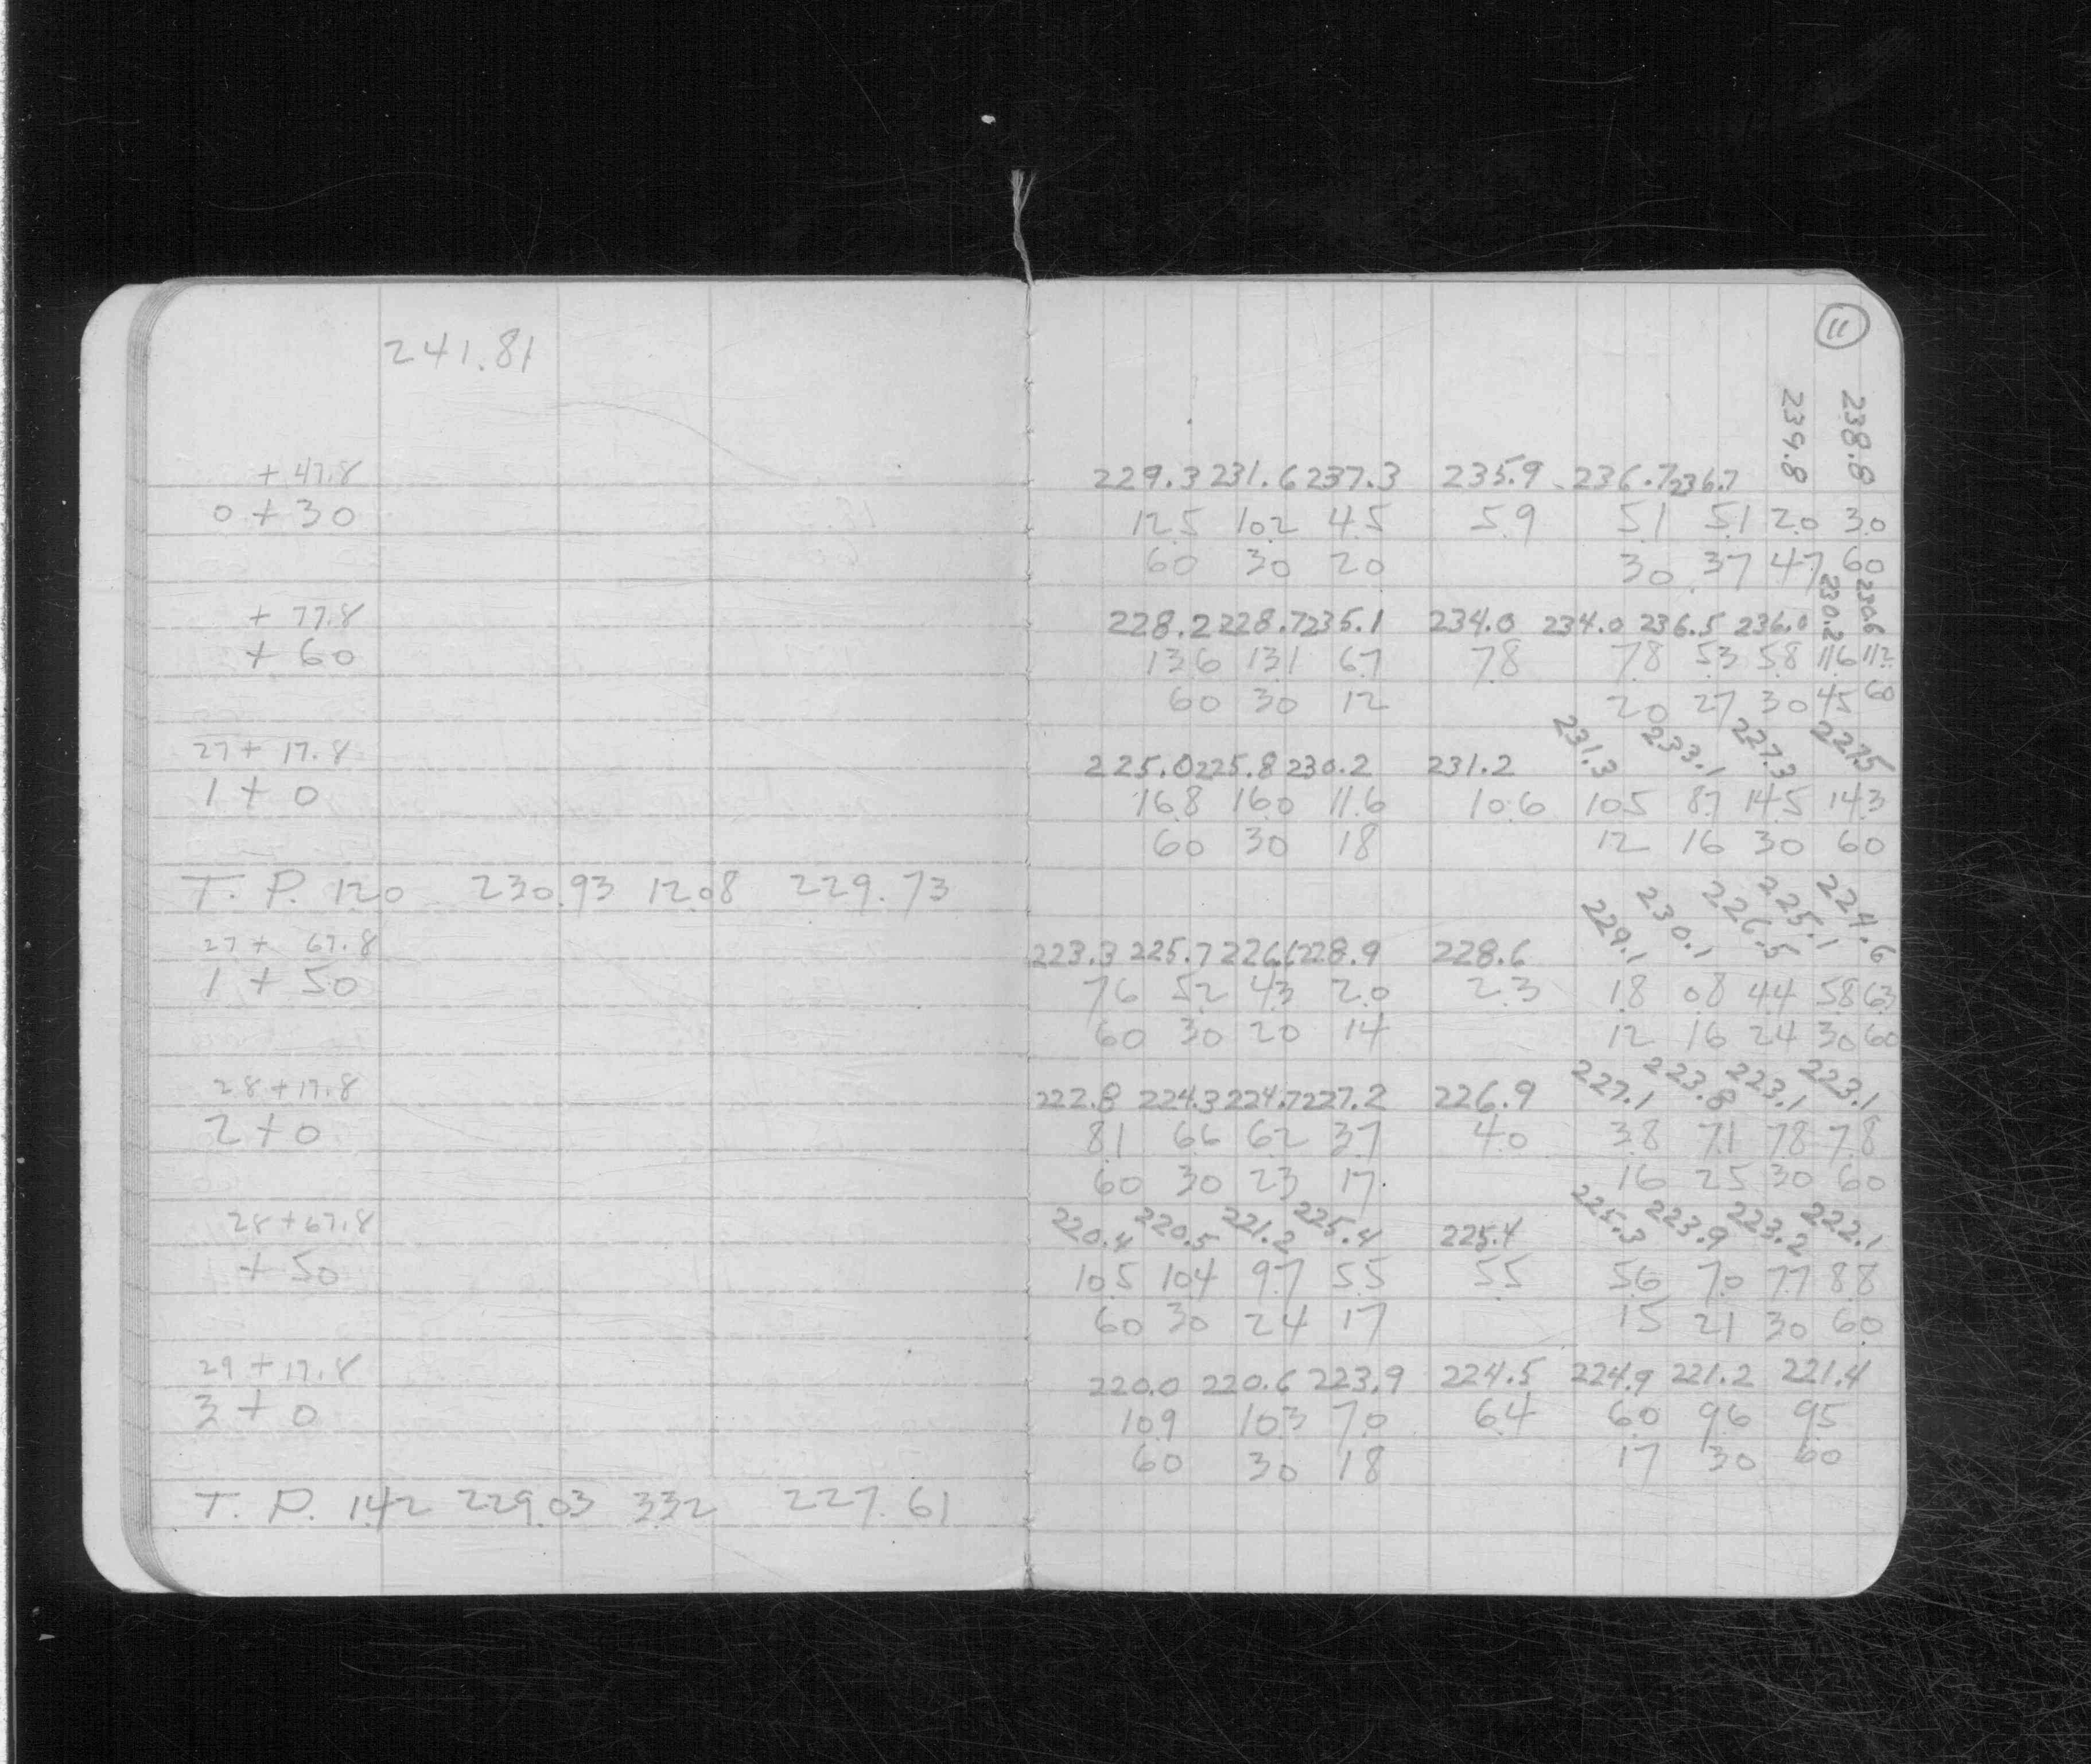 241.81
+ 47.8
0 + 30
+ 77.8
+ 60
27 + 17.8
1 + 0
T. P. 1.20 230.93 12.08 229.73
27 + 67.8
1 + 50
28 + 17.8
2 + 0
28 + 67.8
+ 50
29 + 17.8
3 + 0
T. P. 1.42 229.03 3.32 227.61
11
229.3 231.6 237.3 235.9 236.7 236.7 239.8 238.8
12.5 10.2 4.5 5.9 5.1 5.1 2.0 3.0
60 30 20 30 37 47 60
228.2 228.7 235.1 234.0 234.0 236.5 236.0 230.2 230.6
13.6 13.1 6.7 7.8 7.8 5.3 5.8 11.6 11.2
60 30 12 20 27 30 45 60
225.0 225.8 230.2 231.2 231.3 233.1 227.3 227.5
16.8 16.0 11.6 10.6 10.5 8.7 14.5 14.3
60 30 18 12 16 30 60
223.3 225.7 226.6 228.9 228.6 229.1 230.1 226.5 225.1 224.6
7.6 5.2 4.3 2.0 2.3 1.8 0.8 4.4 5.8 6.3
60 30 20 14 12 16 24 30 60
222.8 224.3 224.7 227.2 226.9 227.1 223.8 223.1 223.1
8.1 6.6 6.2 3.7 4.0 3.8 7.1 7.8 7.8
60 30 23 17 16 25 30 60
220.4 220.5 221.2 225.4 225.4 225.3 223.9 223.2 222.1
10.5 10.4 9.7 5.5 5.5 5.6 7.0 7.7 8.8
60 30 24 17 15 21 30 60
220.0 220.6 223.9 224.5 224.9 221.2 221.4
10.9 10.3 7.0 6.4 6.0 9.6 9.5
60 30 18 17 30 60